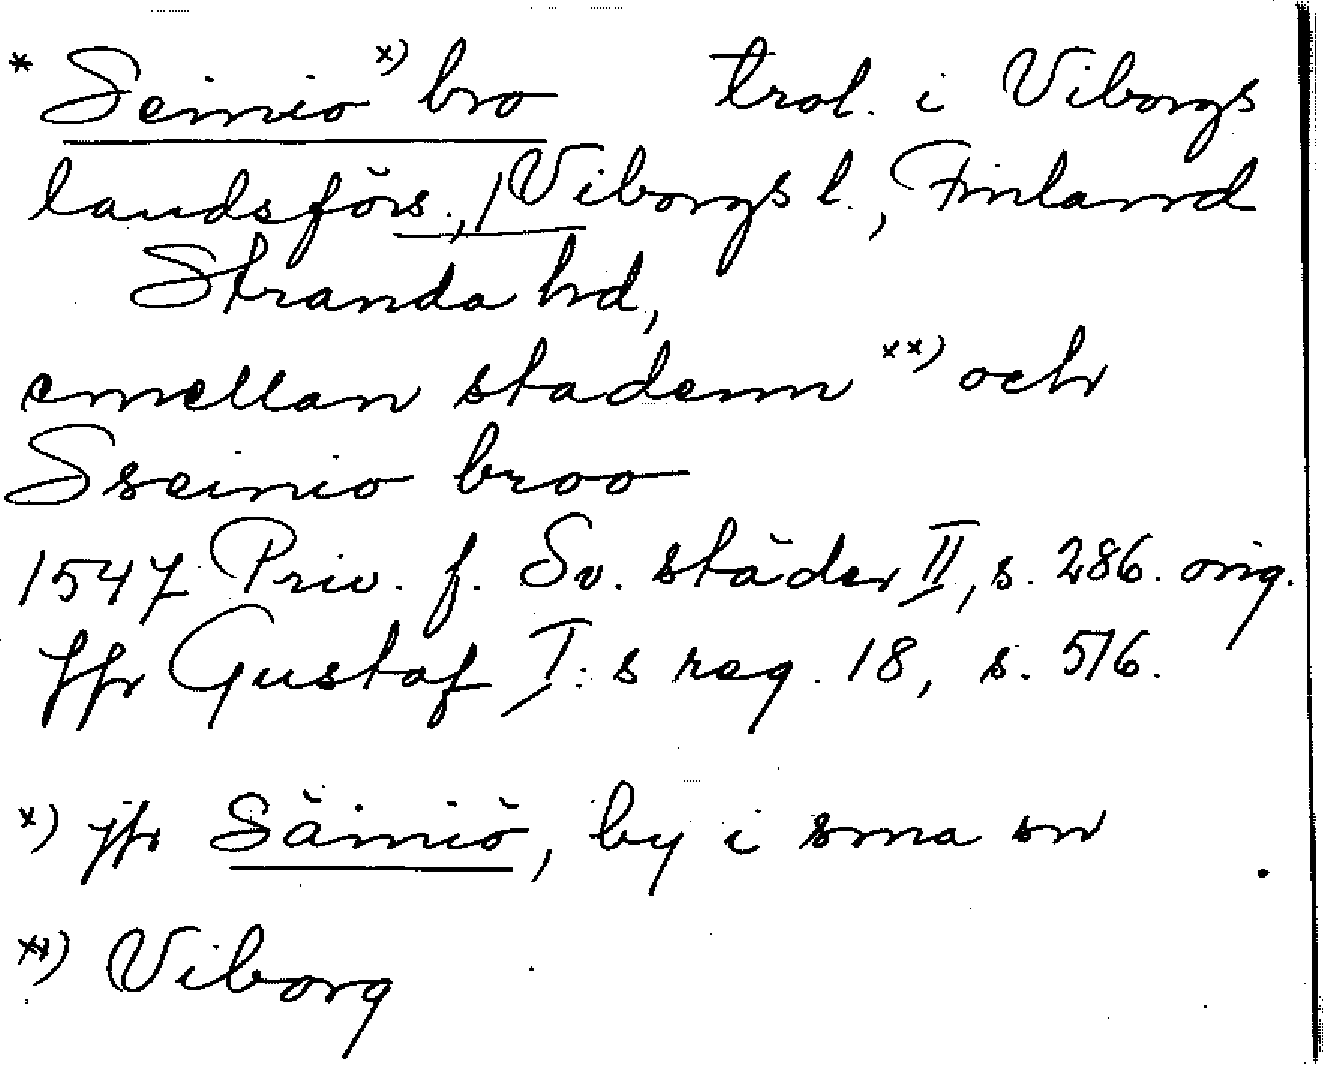 * Seinio x) bro trol. i Viborgs
landsförs., Viborgs l., Finland
Stranda hd,
emellan stadenn xx) och
Sseinio broo
1547 Priv. f. Sv. städer II, s. 286. orig.
Jfr Gustaf I:s reg. 18, s. 516.
x) jfr Säiniö, by i sma sn
xx) Viborg